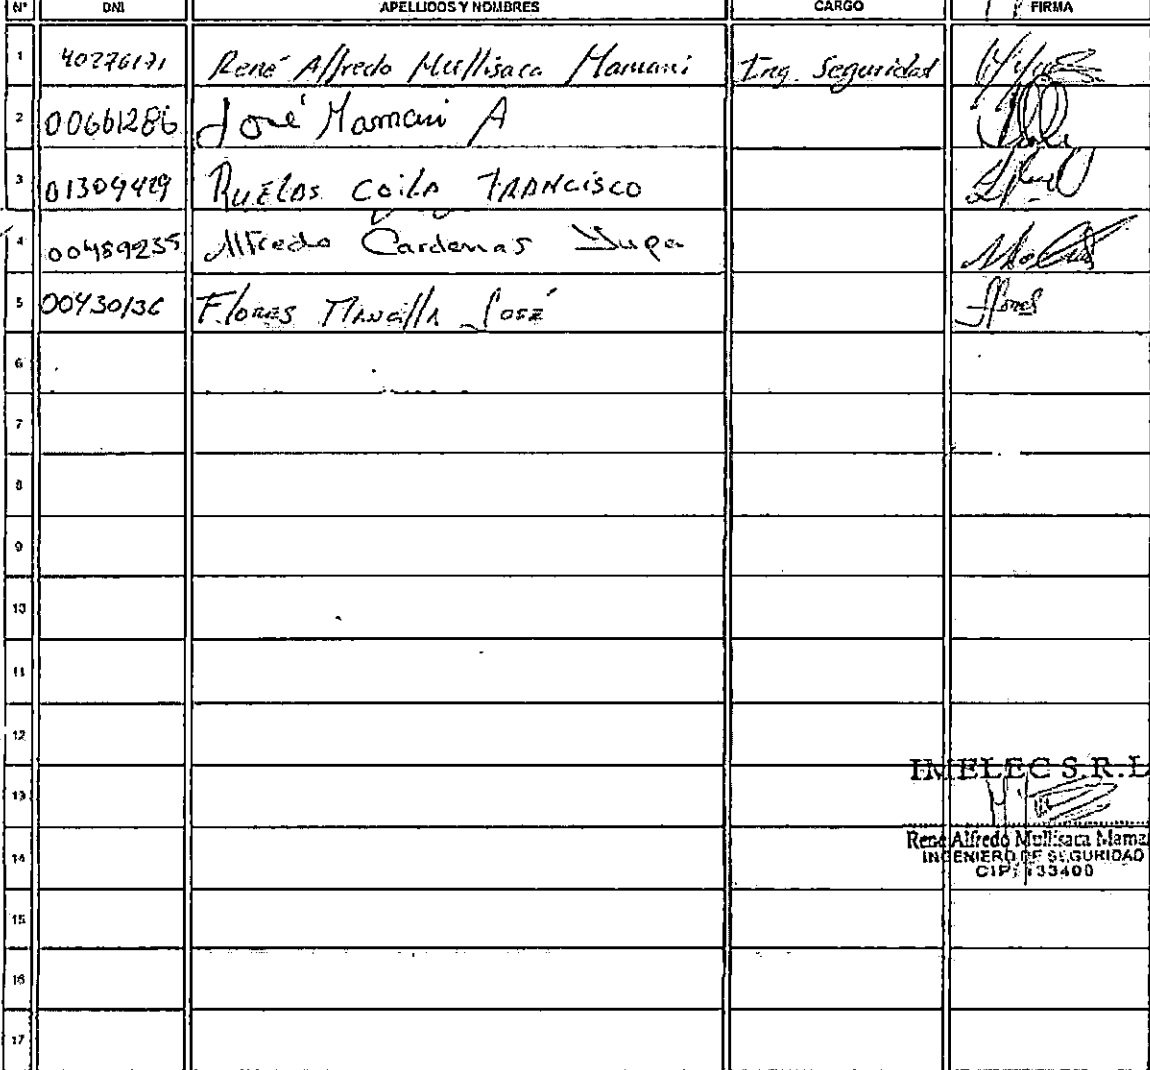 N° DNI APELLIDOS Y NOMBRES CARGO FIRMA
1 40276171 René Alfredo Mullisaca Mamani Ing. Seguridad
2 00661286 José Mamani A
3 01309429 Ruelas Coila Francisco
4 00489235 Alfredo Cardenas Yupa
5 00430136 Flores Mancilla José Flores
6
7
8
9
10
11
12
IMELEC S.R.L
13
René Alfredo Mullisaca Mama
14 INGENIERO DE SEGURIDAD
CIP: 133400
15
16
17